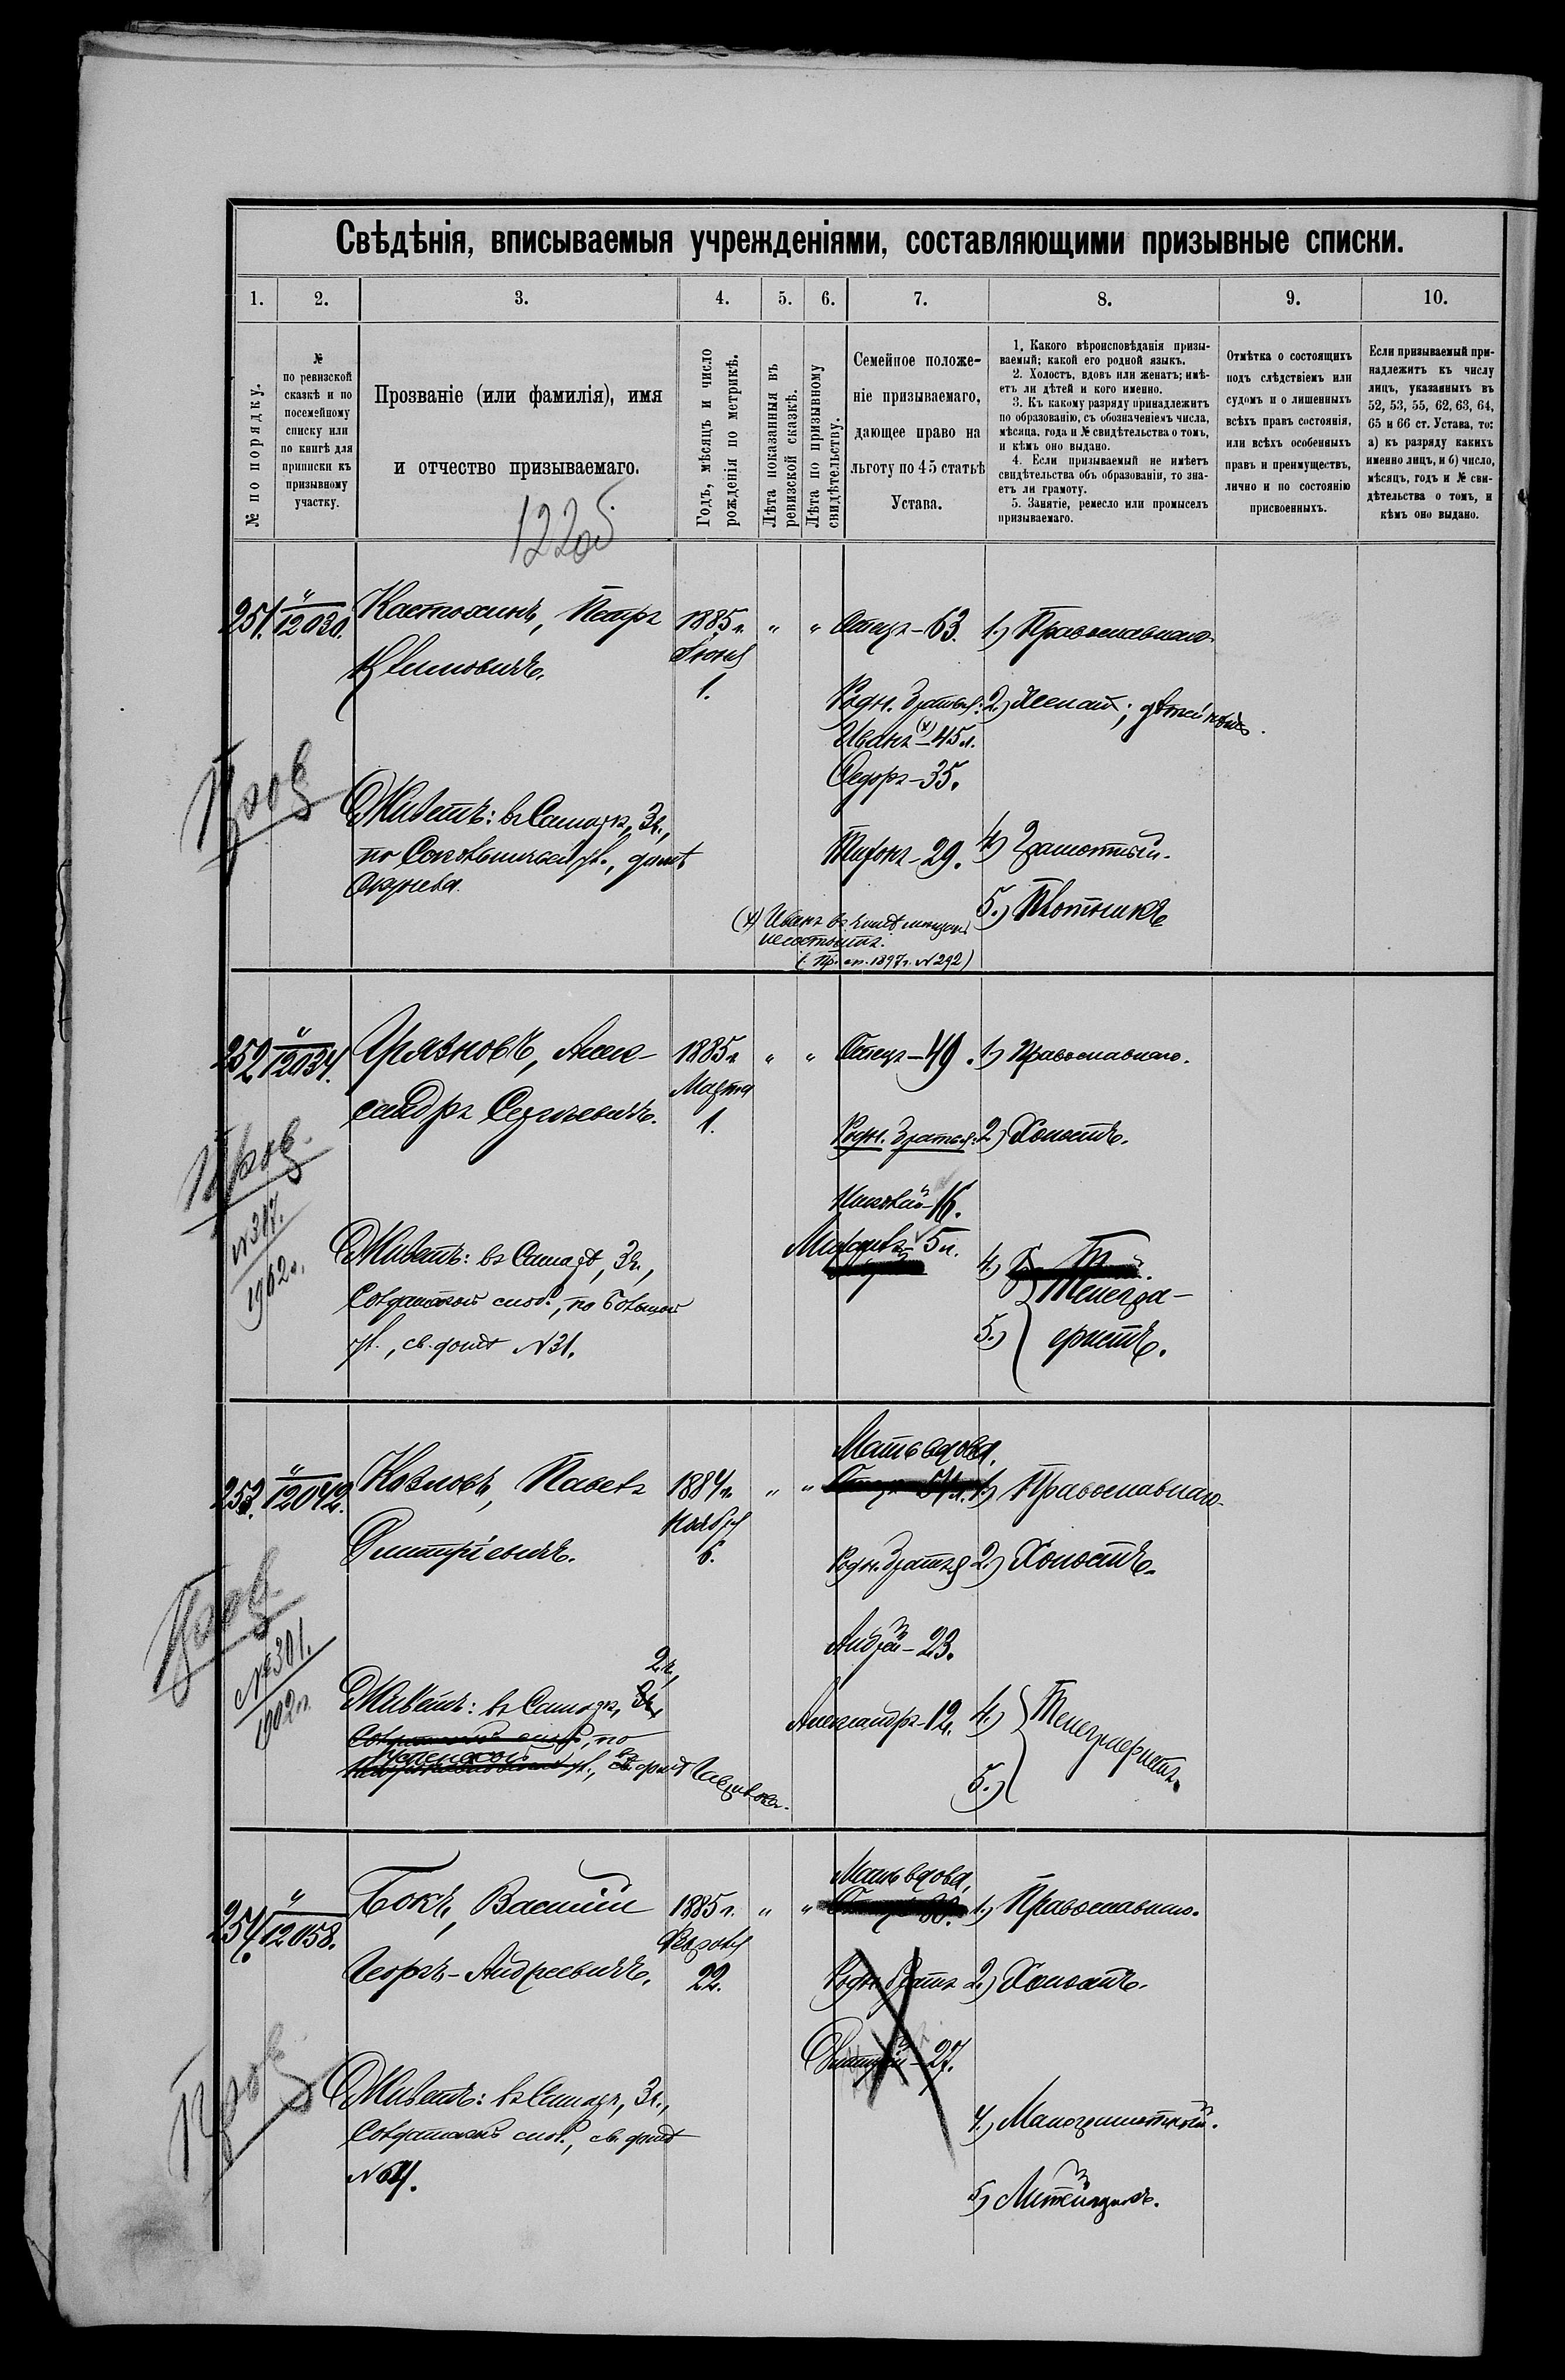 Свѣдѣнія, вписываемыя учрежденіями, составляющими призывные списки.
1. 2. 3. 4. 5. 6. 7. 8. 9. 10.
№ по порядку.
№
по ревизской
сказкѣ и по
посемейному
списку или
по книгѣ для
приписки къ
призывному
участку.
Прозваніе (или фамилія), имя
и отчество призываемаго.
Годъ, мѣсяцъ и число
рожденія по метрикѣ.
Лѣта показанныя въ
ревизской сказкѣ.
Лѣта по призывному
свидѣтельству.
Семейное положе-
ніе призываемаго,
дающее право на
льготу по 45 статьѣ
Устава.
1. Какого вѣроисповѣданія призы-
ваемый; какой его родной языкъ.
2. Холостъ, вдовъ или женатъ; имѣ-
етъ ли дѣтей и кого именно.
3. Къ какому разряду принадлежитъ
по образованію, съ обозначеніемъ числа,
мѣсяца, года и № свидѣтельства о томъ,
и кѣмъ оно выдано.
4. Если призываемый не имѣетъ
свидѣтельства объ образованіи, то зна-
етъ ли грамоту.
5. Занятіе, ремесло или промыселъ
призываемаго.
Отмѣтка о состоящихъ
подъ слѣдствіемъ или
судомъ и о лишенныхъ
всѣхъ правъ состоянія,
или всѣхъ особенныхъ
правъ и преимуществъ,
лично и по состоянію
присвоенныхъ.
Если призываемый при-
надлежитъ къ числу
лицъ, указанныхъ въ
52, 53, 55, 62, 63, 64,
65 и 66 ст. Устава, то:
а) къ разряду какихъ
именно лицъ, и б) число,
мѣсяцъ, годъ и № сви-
дѣтельства о томъ, и
кѣмъ оно выдано.
251. " 12030. Кастохинъ, Петръ 1885 г. " " Отецъ-63. 1.) Православнаго.
Климовичъ. Іюня
1.
Родн. братья: 2.) Женатъ; дѣтей нѣтъ.
Иванъ (х)-45 л.
Ѳедоръ-35.
Пров
Живетъ: въ Самарѣ, 3 ч.,
по ул., домъ
Тихонъ-29. 4.) Грамотный.
5.) Плотникъ
(х) Иванъ въ мѣщанъ
не состоитъ.
(Пр. сп. 1897 г. № 292)
252. " 12034. Грязновъ, Алек- 1885 г. " " Отецъ-49. 1.) Православнаго.
сандръ Сергѣевичъ. Марта
1.
Родн. братья: 2.) Холостъ.
Пров.
№ 317.
1902 г.
Николай-16.
Михаилъ-5 л.
Живетъ: въ Самарѣ, 3 ч.,
Солдатской слоб., по Большой
ул., св. домъ № 31.
4.)
5.) Телегра-
фистъ.
253. " 12042. Козловъ, Павелъ 1884 г. " " Мать вдова. 1.) Православнаго.
Дмитріевичъ. Ноября
6.
Родн. братья 2.) Холостъ.
Пров
№ 301.
1902 г.
Андрей-23.
2 ч.,
Живетъ: въ Самарѣ,
по
ул., домѣ
Александръ-12. 4.) Телеграфистъ.
5.)
254. " 12058. Бокъ, Василій 1885 г. " " Мать вдова, 1.) Православнаго.
Георгъ-Андреевичъ. Февраля
22.
Родн. братъ 2.) Холостъ.
Дмитрій-27.
Пров
Живетъ: въ Самарѣ, 3 ч.,
Солдатской слоб., св. домъ
4.) Малограмотный.
5.) Литейщикъ.